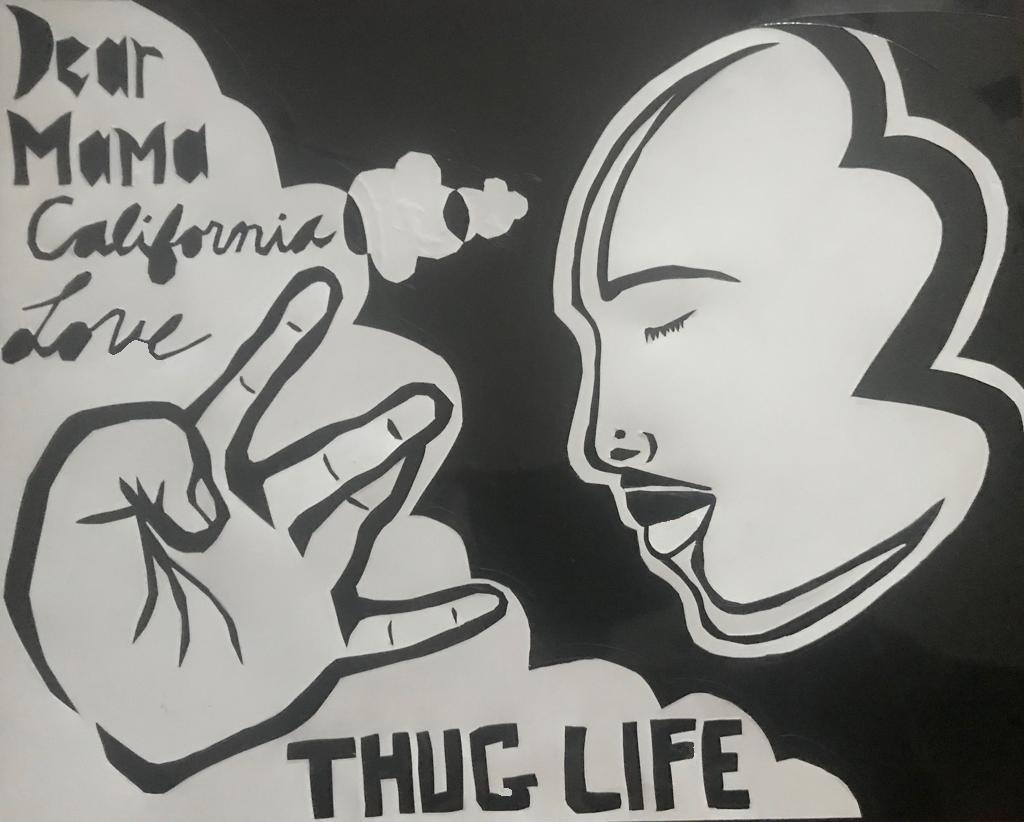 Dear
Mama
California
Love
THUG LIFE